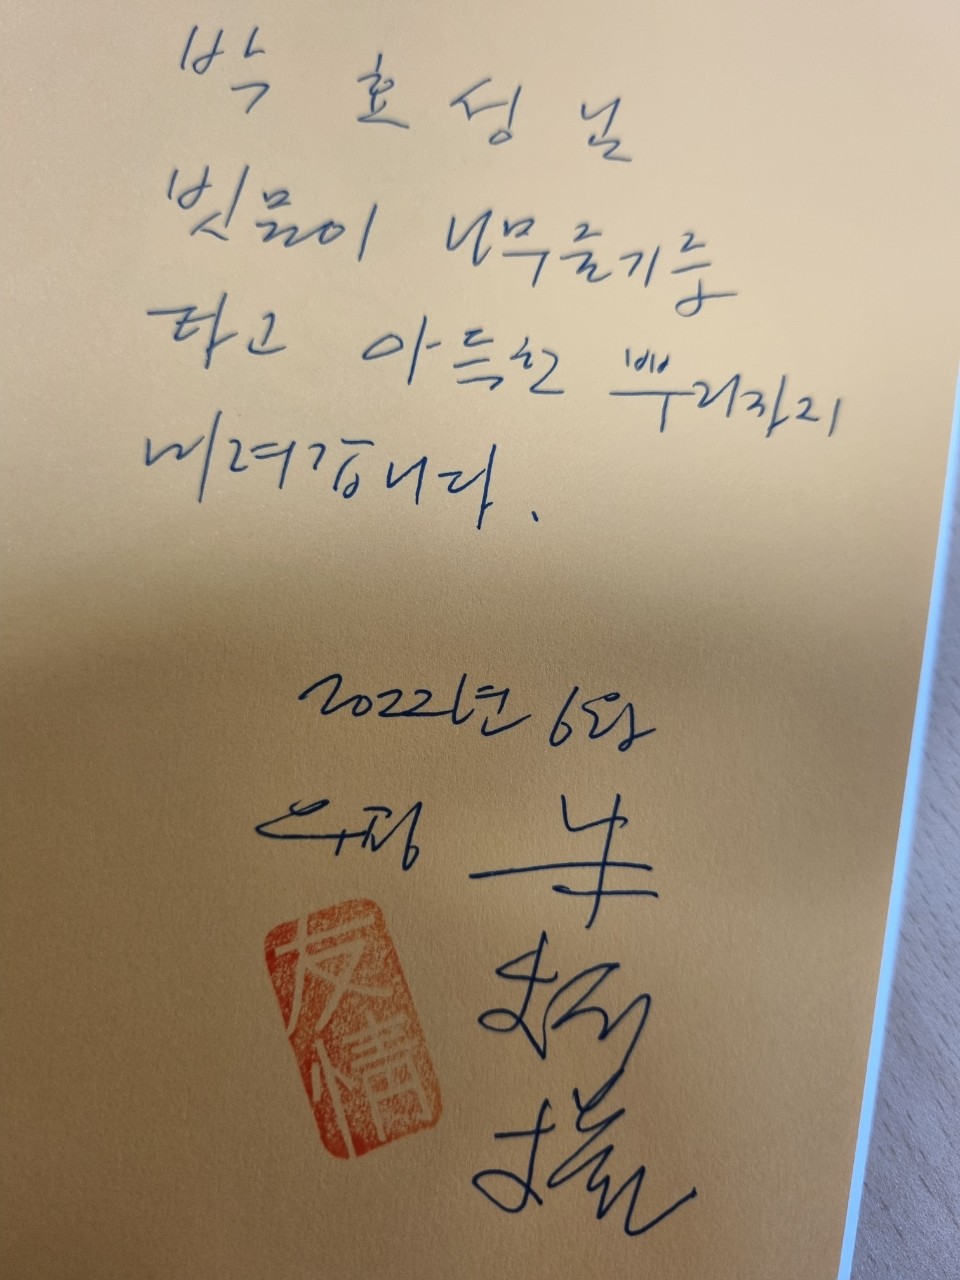 박 효성 님
빗물이 나무줄기를
타고 아득한 뿌리까지
내려갑니다.
2022년 6월
우정
友情